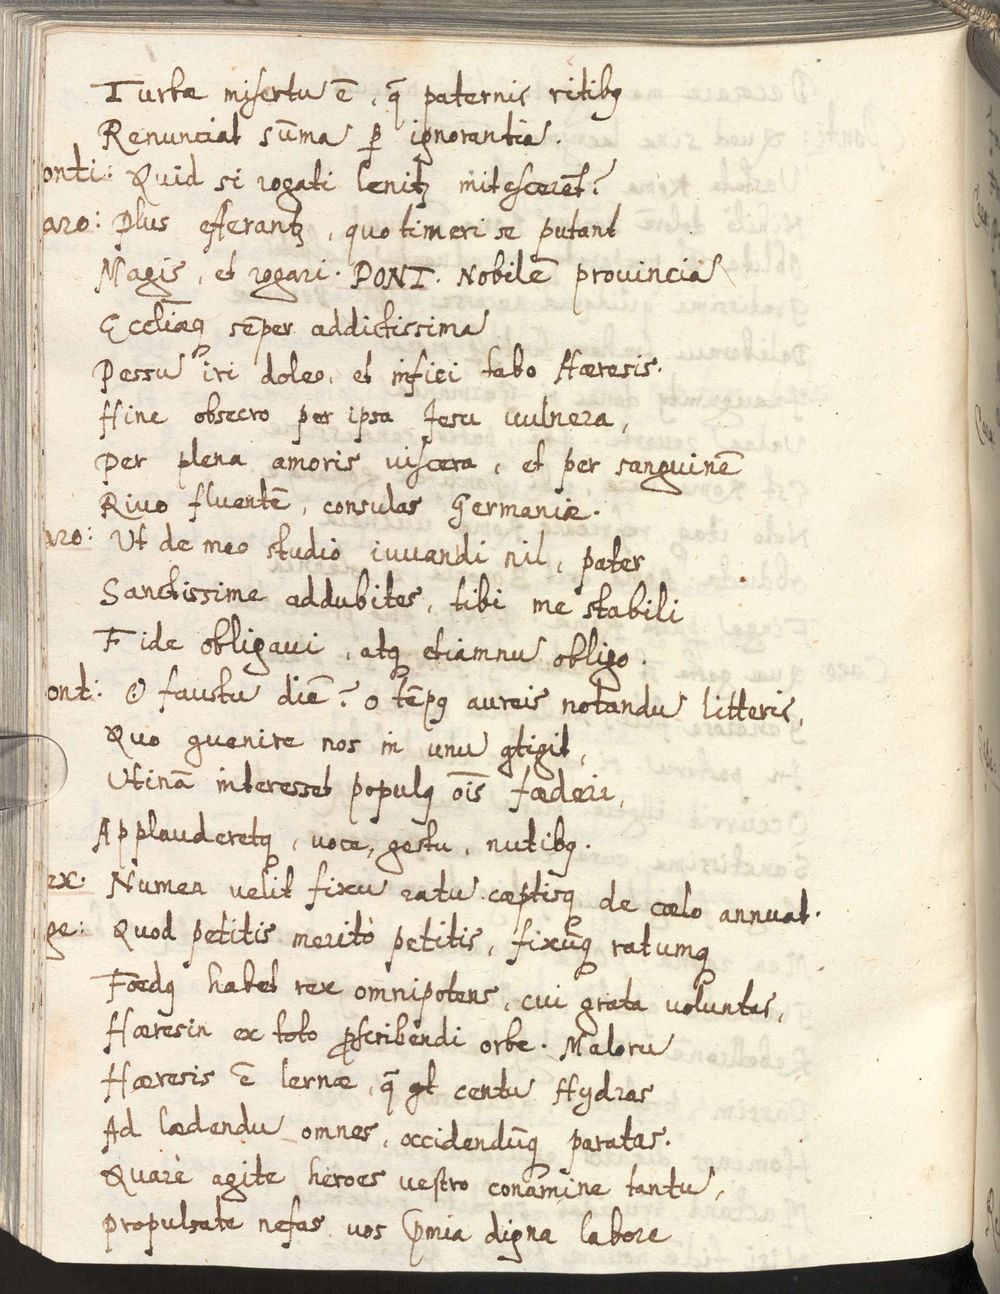 Turbæ misertũ ē, q̃ paternis ritibꝰ
Renunciat sũma ꝑ ignorantiã.
onti: Quid si rogati lenitꝰ mitesceret̃?
aro: Plus efferantꝰ, quo timeri se putant
Magis, et rogari. PONT. Nobilẽ prouinciã
Eccliæq sẽper addictissimã
Pessũ iri doleo, et infici tabo Hæresis.
Hinc obsecro per ipsa Jesu uulnera,
Per plena amoris uiscera, et per sanguinẽ
Riuo fluentẽ, consulas Germaniæ.
aro: Ut de meo studio iuuandi nil, pater
Sanctissime addubites, tibi me stabili
Fide obligaui, atq etiamnũ obligo.
ont: O faustũ diẽ? o tẽpꝰ aureis notandũ litteris,
Quo ꝯuenire nos in unũ ꝯtigit,
Utinã interesset populꝰ oĩs fœderi,
Applauderetq, uoce, gestu, nutibꝰ.
ex. Numen uelit fixũ ratũ cœptisq de cœlo annuat.
ge: Quod petitis meritò petitis, fixũq ratumq
Fœdꝰ habet rex omnipotens, cui grata uoluntas,
Hæresin ex toto ꝓscribendi orbe. Malorũ
Hæresis ẽ lernæ, q̃ ꝯt centũ Hydras
Ad lædendũ omnes, occidendũq paratas.
Quare agite heroes uestro conamine tantũ,
Propulsate nefas uos p̃mia digna labore